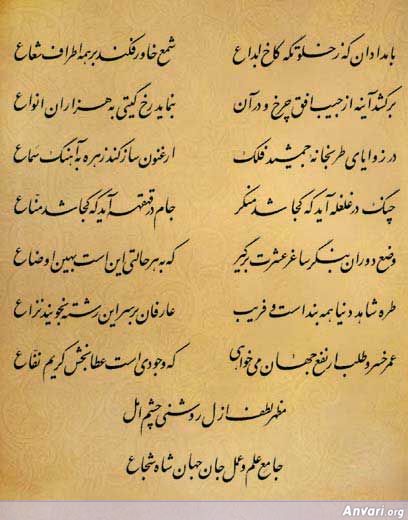 بامدادان که ز خلوتگه کاخ ابداع شمع خاور فکند بر همه اطراف شعاع
برکشد آینه از جیب افق چرخ و در آن بنماید رخ گیتی به هزاران انواع
در زوایای طربخانه جمشید فلک ارغنون ساز کند زهره به آهنگ سماع
چنگ در غلغله آید که کجا شد منکر جام در قهقهه آید که کجا شد مناع
وضع دوران بنگر ساغر عشرت برگیر که به هر حالتی این است بهین اوضاع
طره شاهد دنیا همه بند است و فریب عارفان بر سر این رشته نجویند نزاع
عمر خسرو طلب ار نفع جهان می‌خواهی که وجودی است عطابخش کریم نفاع
مظهر لطف ازل روشنی چشم امل
جامع علم و عمل جان جهان شاه شجاع
Anvari.org